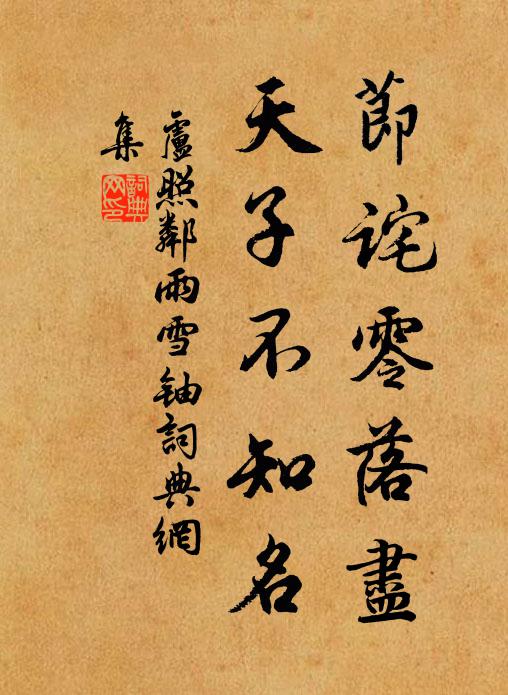 莭詫零落盡
天子不知名
盧照鄰雨雪鈾詞典網
集
詞典
网印